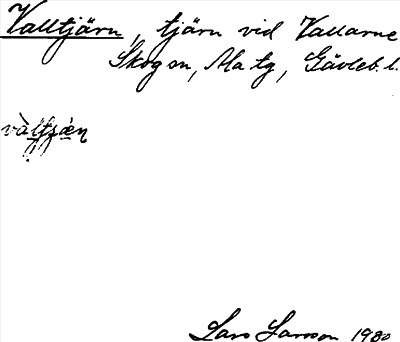 Valltjärn, tjärn vid Vallarne
Skogen, Ala tg, Gävleb. l.
Lars Larsson 1980